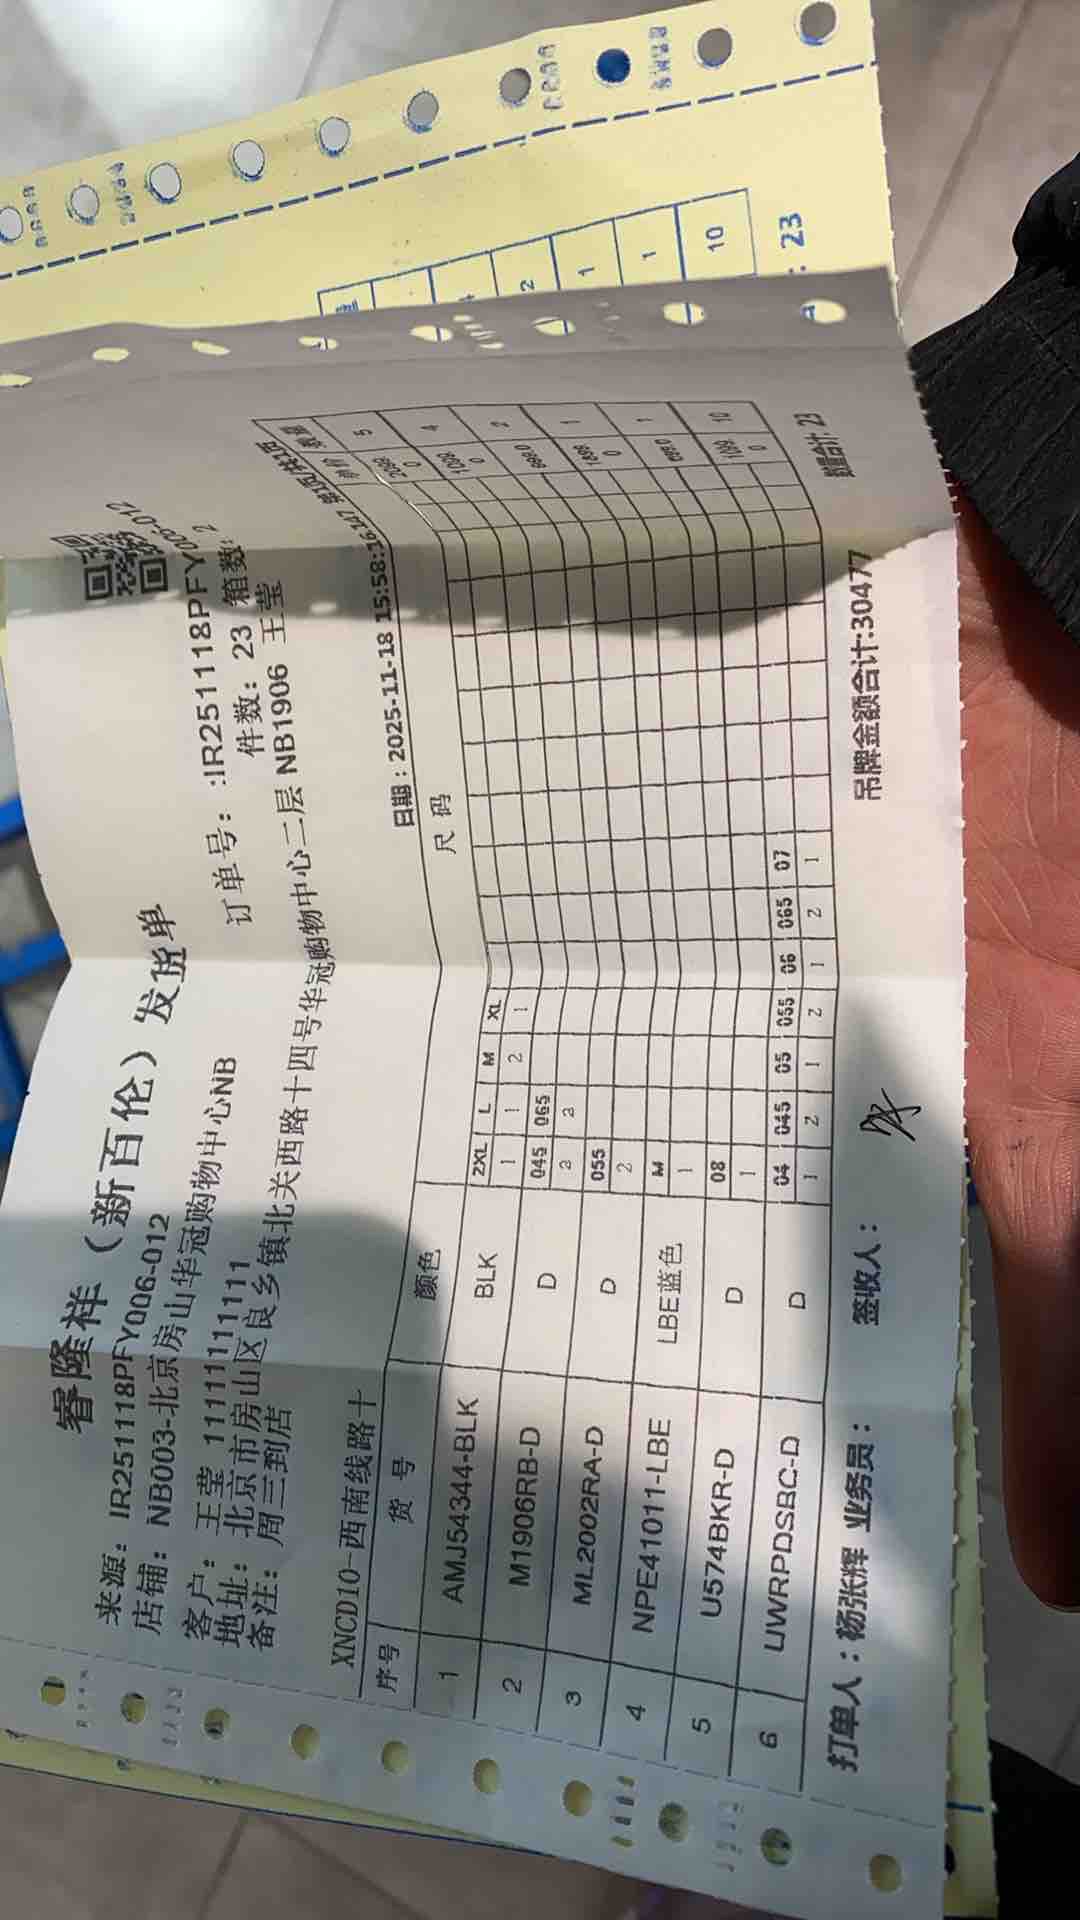 睿隆祥（新百伦）发货单
来源： IR251118PFY006-012
店铺： NB003-北京房山华冠购物中心NB
订单号： :IR251118PFY006-012
客户： 王莹 11111111111
件数： 23 箱数: 2
地址： 北京市房山区良乡镇北关西路十四号华冠购物中心二层 NB1906 王莹
备注： 周三到店
XNCD10-西南线路十
日期：2025-11-18 15:58:16.147 第1页/共1页
序号 货 号 颜色 尺 码 吊牌 数量
2XL L M XL
1 AMJ54344-BLK BLK 1 1 2 1 5
045 065
2 M1906RB-D D 2 2 1099.0 4
055
3 ML2002RA-D D 2 2
M
4 NPE41011-LBE LBE蓝色 1 1
08
5 U574BKR-D D 1 1
04 045 05 055 06 065 07
6 UWRPDSBC-D D 1 2 1 2 1 2 1 1099.0 10
数量合计: 23
打单人：杨张辉 业务员： 签收人： 吊牌金额合计:30477
2
1
1
10
: 23